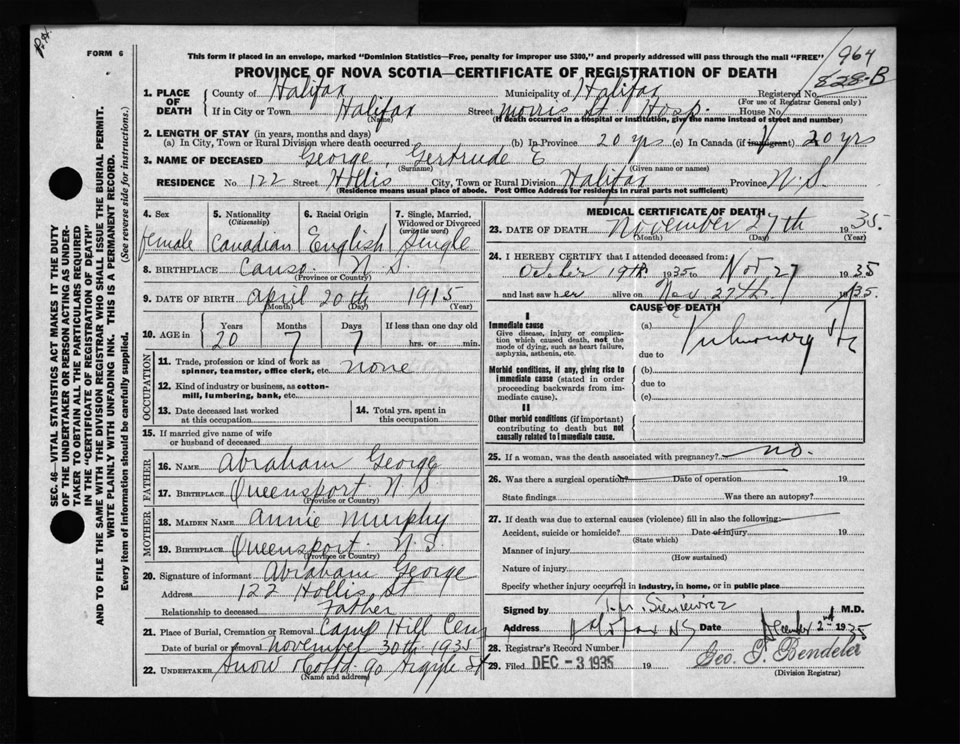 P.H.
FORM 6
This form if placed in an envelope, marked "Dominion Statistics—Free, penalty for improper use $300," and properly addressed will pass through the mail "FREE"
964
PROVINCE OF NOVA SCOTIA—CERTIFICATE OF REGISTRATION OF DEATH
828-B
1. PLACE OF DEATH
County of Halifax Municipality of Halifax Registered No.
(For use of Registrar General only)
If in City or Town Halifax Street Morris St Hosp. House No.
(Name) (If death occurred in a hospital or institution, give the name instead of street and number)
2. LENGTH OF STAY (in years, months and days)
(a) In City, Town or Rural Division where death occurred (b) In Province 20 yrs (c) In Canada (if immigrant) 20 yrs
3. NAME OF DECEASED George, Gertrude E
(Surname) (Given name or names)
RESIDENCE No. 122 Street Hollis City, Town or Rural Division Halifax Province N.S.
(Residence means usual place of abode. Post Office Address for residents in rural parts not sufficient)
4. Sex female
5. Nationality (Citizenship) Canadian
6. Racial Origin English
7. Single, Married, Widowed or Divorced (write the word) Single
8. BIRTHPLACE Canso N.S.
(Province or Country)
9. DATE OF BIRTH April 20th 1915
(Month) (Day) (Year)
10. AGE in Years 20 Months 7 Days 7 If less than one day old hrs. or min.
OCCUPATION
11. Trade, profession or kind of work as spinner, teamster, office clerk, etc. none
12. Kind of industry or business, as cotton-mill, lumbering, bank, etc.
13. Date deceased last worked at this occupation
14. Total yrs. spent in this occupation
15. If married give name of wife or husband of deceased
FATHER
16. NAME Abraham George
17. BIRTHPLACE Queensport N S
(Province or Country)
MOTHER
18. MAIDEN NAME Annie Murphy
19. BIRTHPLACE Queensport N S
(Province or Country)
20. Signature of informant Abraham George
Address 122 Hollis St
Relationship to deceased Father
21. Place of Burial, Cremation or Removal Camp Hill Cem
Date of burial or removal November 30th 1935
22. UNDERTAKER Snow & Co Ltd 90 Argyle St
(Name and address)
MEDICAL CERTIFICATE OF DEATH
23. DATE OF DEATH November 27th 1935.
(Month) (Day) (Year)
24. I HEREBY CERTIFY that I attended deceased from:
October 19th 1935 to Nov 27 1935
and last saw her alive on Nov. 27th. 1935.
CAUSE OF DEATH
I
Immediate cause
Give disease, injury or complication which caused death, not the mode of dying, such as heart failure, asphyxia, asthenia, etc.
(a) Pulmonary
due to
Morbid conditions, if any, giving rise to immediate cause (stated in order proceeding backwards from immediate cause).
(b)
due to
(c)
II
Other morbid conditions (if important) contributing to death but not causally related to immediate cause.
25. If a woman, was the death associated with pregnancy? no.
26. Was there a surgical operation? Date of operation 19
State findings Was there an autopsy?
27. If death was due to external causes (violence) fill in also the following:
Accident, suicide or homicide? Date of injury 19
(State which)
Manner of injury
(How sustained)
Nature of injury
Specify whether injury occurred in industry, in home, or in public place
Signed by T.M. Sieniewicz M.D.
Address Halifax NS Date December 2nd 1935
28. Registrar's Record Number
29. Filed DEC - 3 1935 19 Geo. J. Bendeler
(Division Registrar)
SEC. 46—VITAL STATISTICS ACT MAKES IT THE DUTY
OF THE UNDERTAKER OR PERSON ACTING AS UNDERTAKER TO OBTAIN ALL THE PARTICULARS REQUIRED
IN THE "CERTIFICATE OF REGISTRATION OF DEATH"
AND TO FILE THE SAME WITH THE DIVISION REGISTRAR WHO SHALL ISSUE THE BURIAL PERMIT.
WRITE PLAINLY WITH UNFADING INK. THIS IS A PERMANENT RECORD.
Every item of information should be carefully supplied. (See reverse side for instructions.)